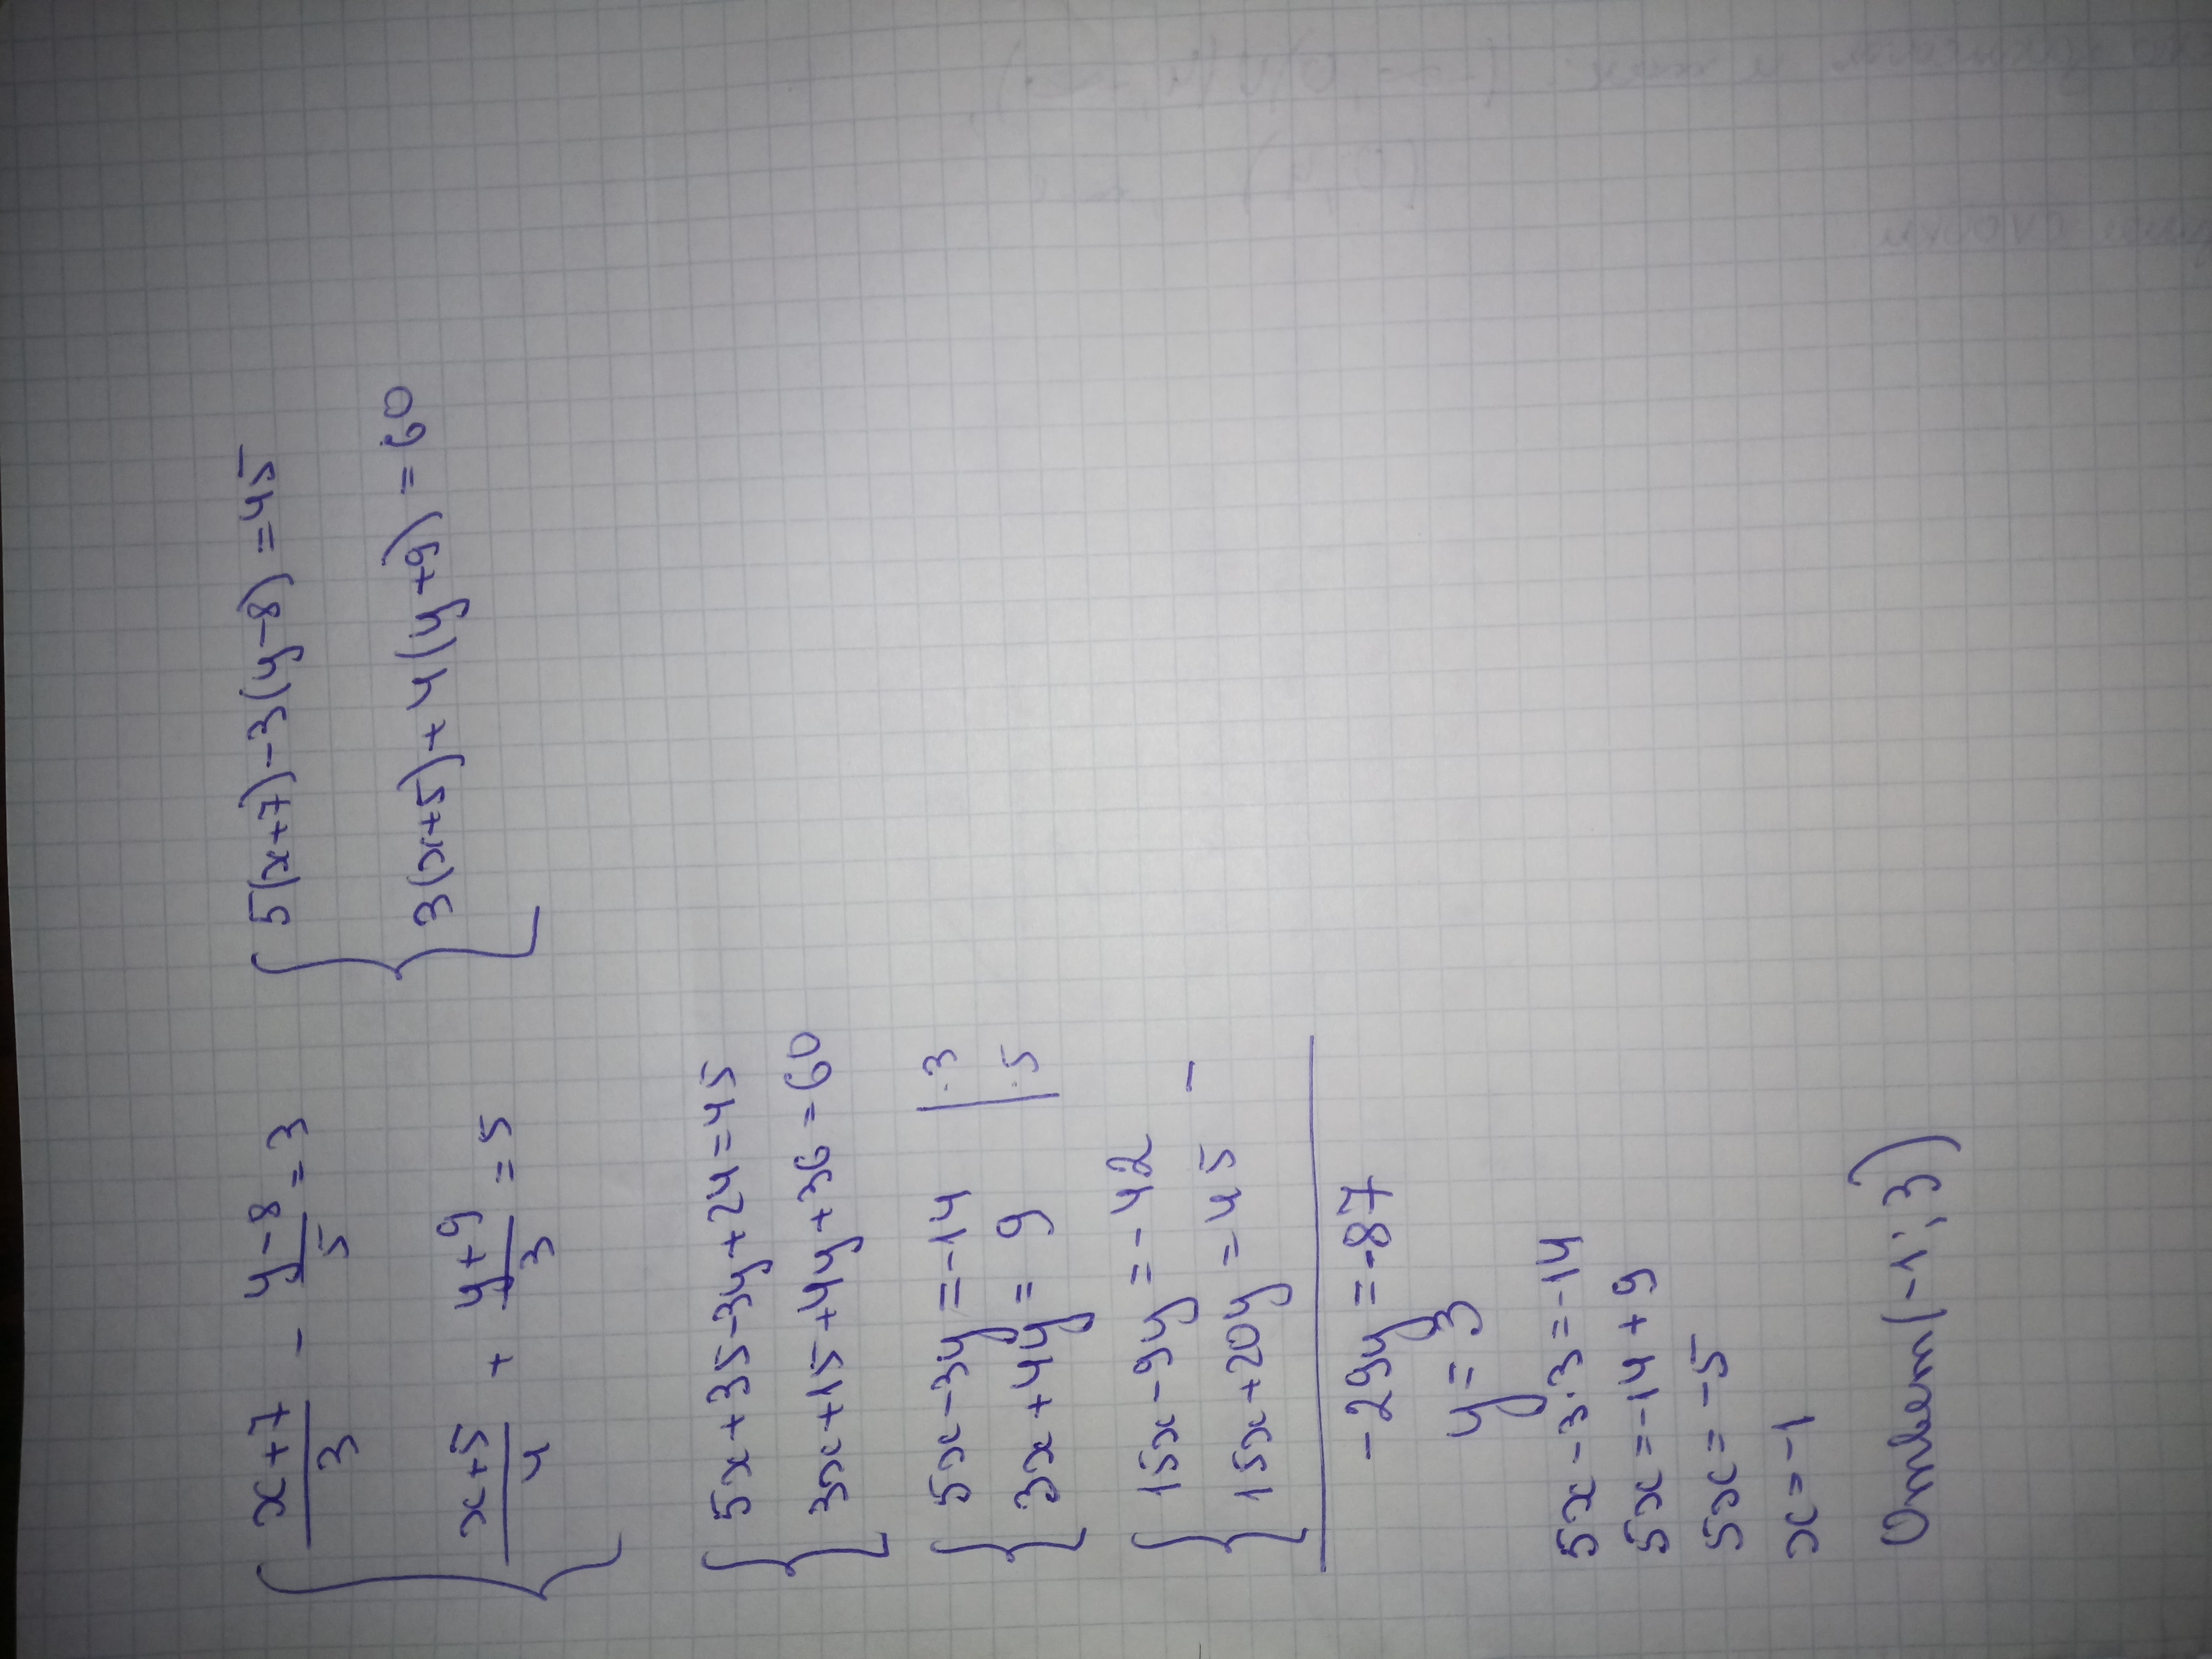 { (x+7)/3 - (y-8)/5 = 3
(x+5)/4 + (y+9)/3 = 5
{ 5(x+7)-3(y-8)=45
3(x+5)+4(y+9)=60
{ 5x+35-3y+24=45
3x+15+4y+36=60
{ 5x-3y=-14 |·3
3x+4y=9 |·5
{ 15x-9y=-42
15x+20y=45 -
-29y=-87
y=3
5x-3·3=-14
5x=-14+9
5x=-5
x=-1
Ответ(-1;3)